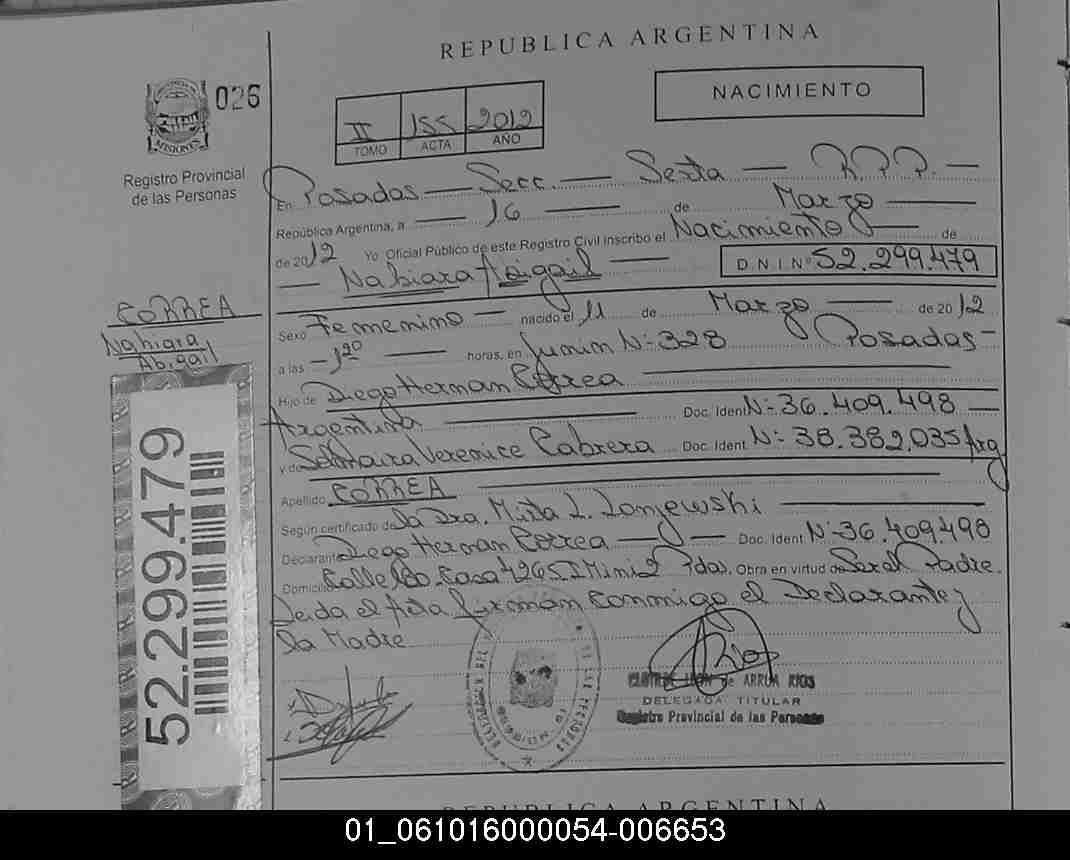 REPUBLICA ARGENTINA
026
NACIMIENTO
II 155 2012
TOMO ACTA AÑO
MISIONES
Registro Provincial
de las Personas
En Posadas — Secc. — Sexta — R.P.P. —
República Argentina, a — 16 — de Marzo —
de 2012 Yo Oficial Público de este Registro Civil inscribo el Nacimiento — de
— Nahiara Abigail — DNI Nº 52.299.479
CORREA
Nahiara
Abigail
Sexo Femenino — nacido el 11 de Marzo — de 2012
a las — 1,20 — horas, en Junin N: 328 Posadas —
Hijo de Diego Hernan Correa
Argentina Doc. Ident N: 36.409.498 —
y de Verenice Cabrera Doc. Ident N: 38.382.035 Arg
Apellido CORREA
Según certificado de la Dra. Mirta L.
Declarante Diego Hernan Correa — Doc. Ident N: 36.409.498
Domicilio Calle Casa 4265 Pdas. Obra en virtud de Ser el Padre.
Leida el Acta firman conmigo el Declarante y
la Madre
52.299.479
de ARRUA RIOS
DELEGADA TITULAR
Registro Provincial de las Personas
REPUBLICA ARGENTINA
01_061016000054-006653